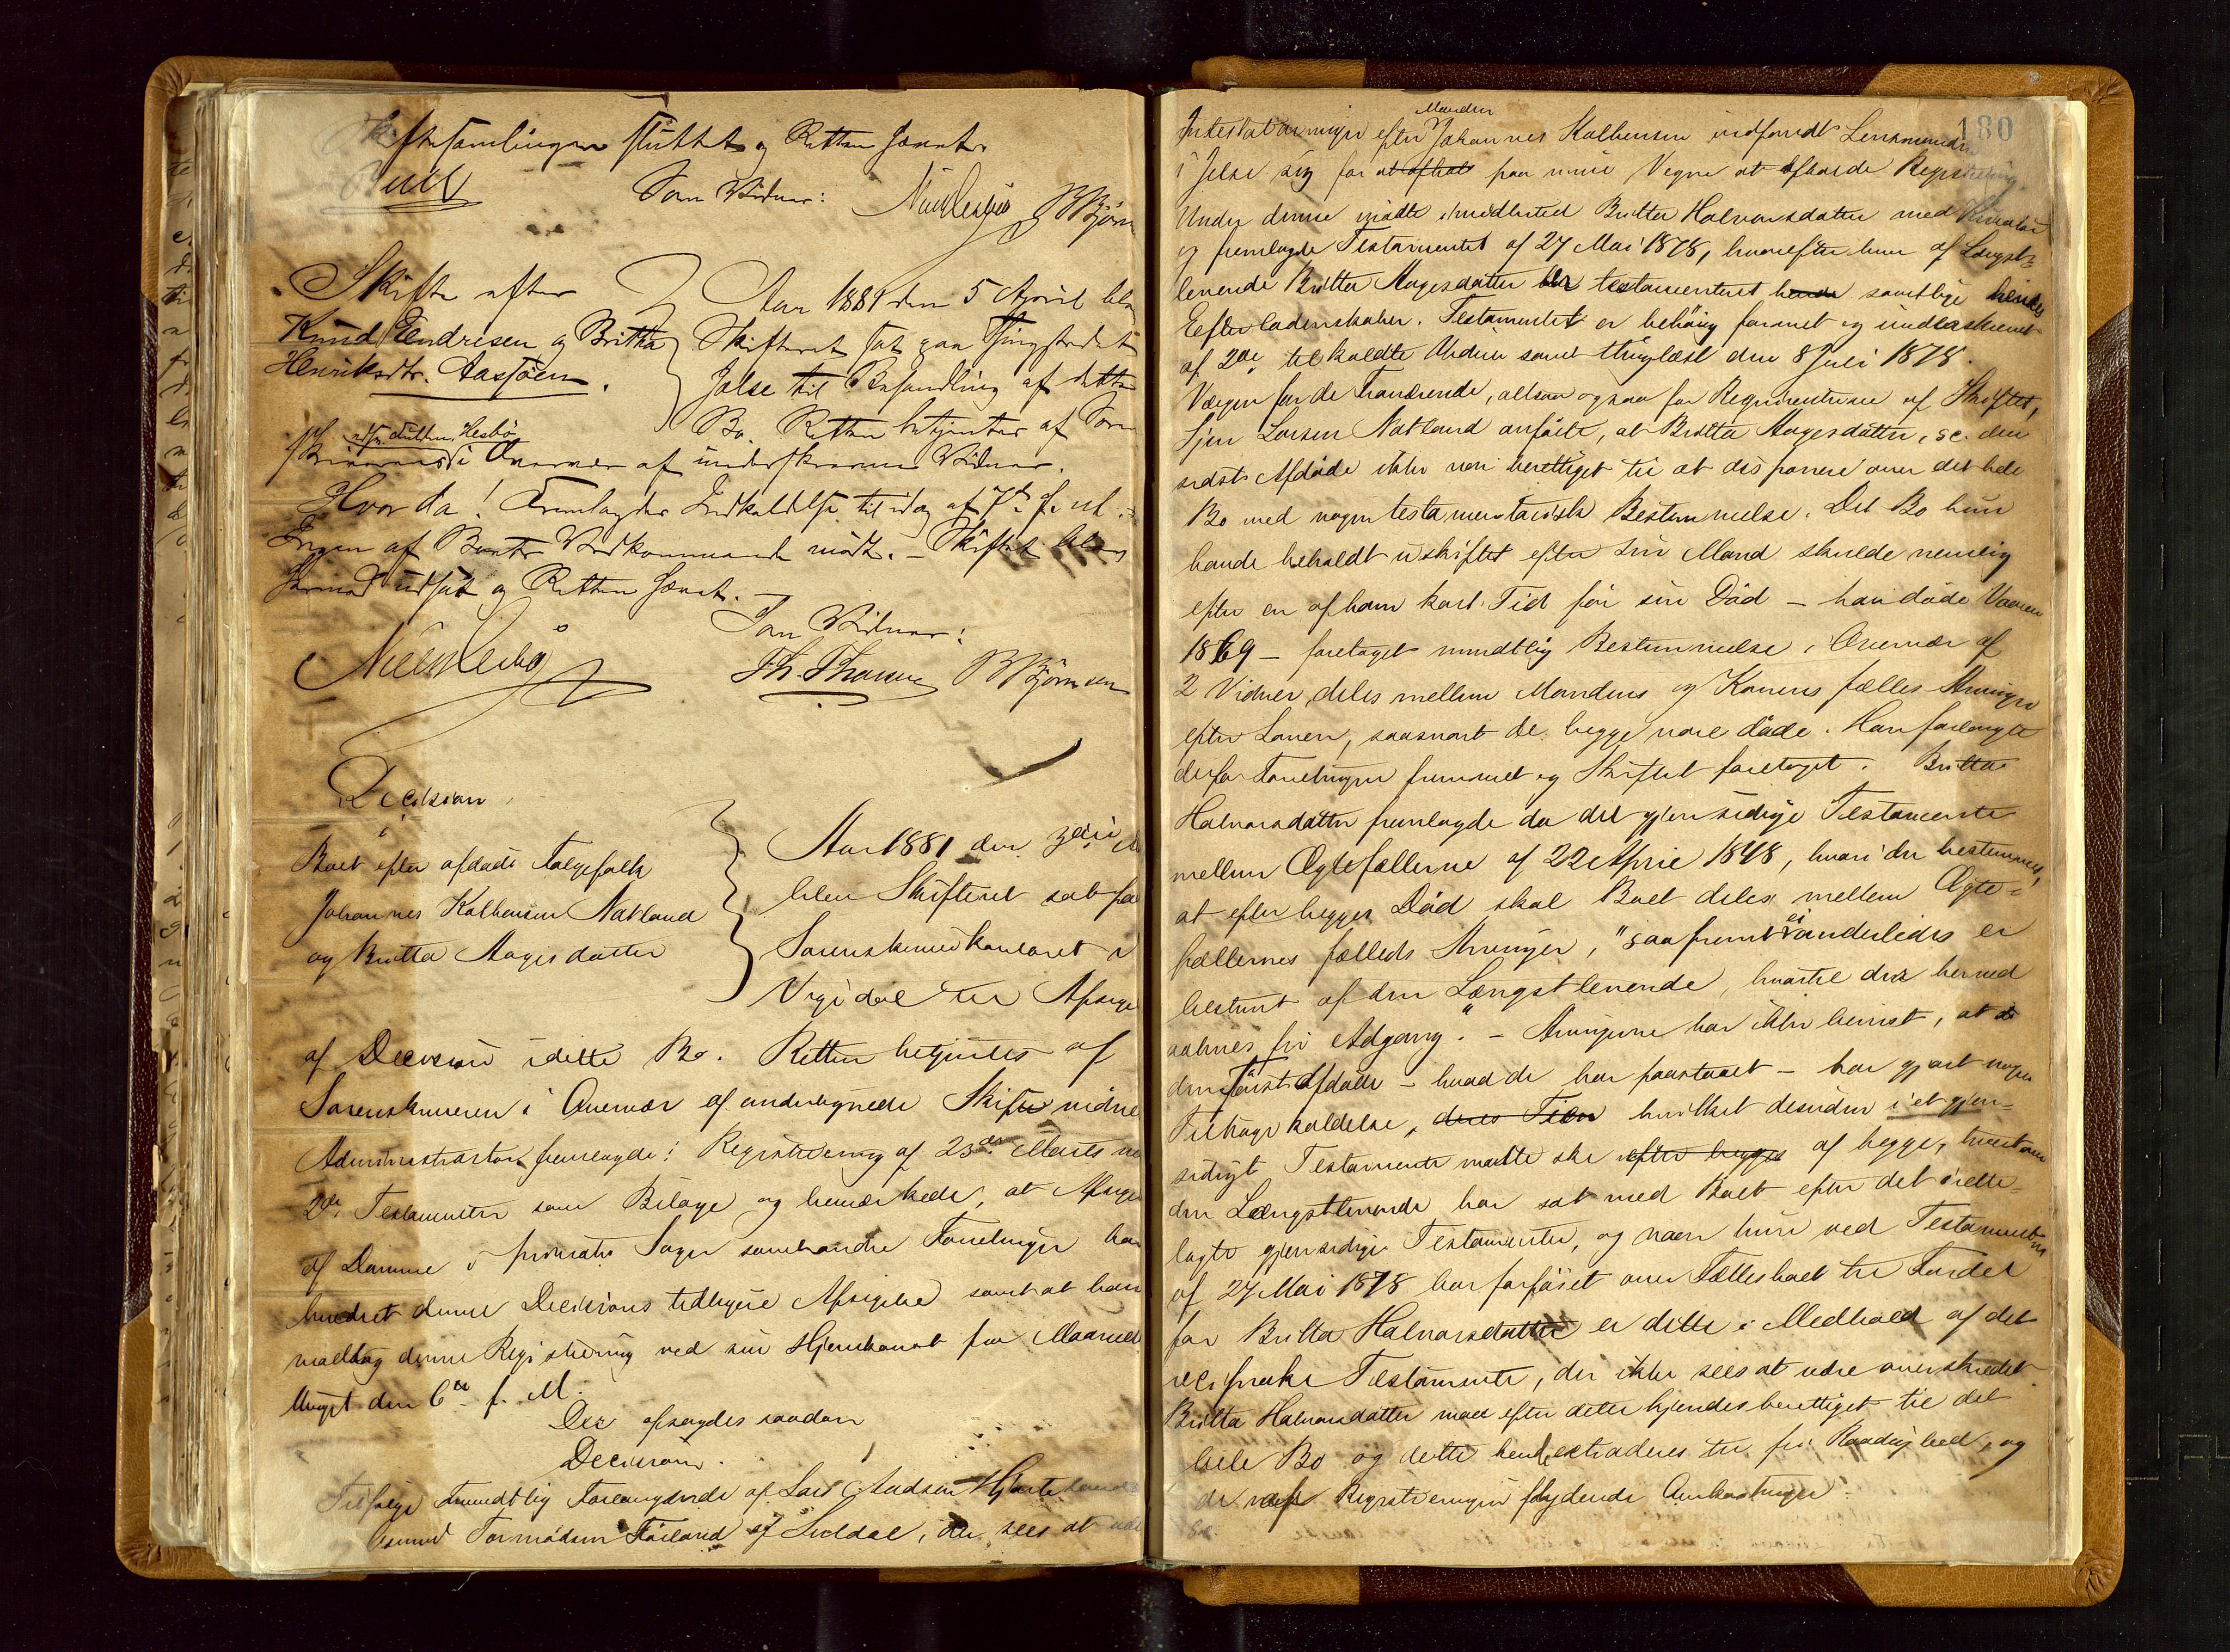 Skiftesamlingen sluttet og Retten hævet.
Bull
Som Vidner: Niels Lesbø B Bjørn
Skifte efter
Knud Endresen og Britha
Henriksdtr. Aasjöen.
Aar 1881 den 5 April blev
Skifteret sat paa Thingstedet
Jelse til Behandling af dette
Bo. Retten betjentes af Soren
skriverens i Overvær af underskrevne Vidner.
Hvor da! Fremlagdes Indkaldelse til idag af 7de f. M.
Ingen af Boets Vedkommende mødte. – Skiftet blev
hermed udsat og Retten hævet. –
Som Vidner:
Niels Lesbø Th. Thomsen B Bjørnsen
Decision
i
Boet efter afdøde Følgefolk
Johannes Kolbensen Natland
og Britta Aagesdatter
Aar 1881 den 30te
blev Skifteret sat paa
Sorenskriverkontoret i
Vigidal til Afsigelse
af Decision i dette Bo. Retten betjentes af
Sorenskriveren i Overvær af undertegnede Skiftevidner
Administrator fremlagde: Registrering af 23de Marts
2de Testamenter som Bilage og bemærkede, at Afsigelse
af Domme i private Sager samt andre Forretninger har
hindret denne Decisions tidligere Afsigelse samt at han
modtog denne Registrering ved sin Hjemkomst fra Maaneds
thinget den 6te f. M.
Der afsagdes saadan
Decision.
Tilfølge mundtlig Forlangende af Lars Aadsen Hjorteland
Tormodsen Førland af Suldal, der sees at være
180
Manden
Intestatarvinger efter Johannes Kolbensen indfandt Lensmanden
i Jelse sig for at afhol paa mine Vegne at afholde Registrering.
Under denne mødte imidlertid Britta Halvorsdatter med Kurator
og fremlagde Testamentet af 27 Mai 1878, hvorefter hun af Længst-
levende Britta Aagesdatter blev testamenteret hende samtlige hendes
Efterladenskaber. Testamentet er behørig forsynet og underskrevet
af 2de tilkaldte Mænd samt thinglæst den 8 Juli 1878.
Værgen for de Fraværende, altsaa ogsaa for Rekvirenterne af Skiftet,
Sjur Larsen Natland anførte, at Britta Aagesdatter, sc. den
sidst Afdøde ikke var berettiget til at disponere over det hele
Bo med nogen testamentarisk Bestemmelse. Det Bo hun
havde beholdt uskiftet efter sin Mand skulde nemlig
efter en af ham kort Tid før sin Død – han døde Vaaren
1869 – foretaget mundtlig Bestemmelse i Overvær af
2 Vidner, deles mellem Mandens og Konens fælles Arvinger
efter Loven, saasnart de begge vare døde. Han forlangte
derfor Forretningen fremmet og Skiftet foretaget. Britta
Halvorsdatter fremlagde da det gjensidige Testamente
mellem Ægtefællerne af 22 April 1848, hvori der bestemmes,
at efter begges Død skal Boet deles mellem Ægte-
fællernes fælleds Arvinger, "saafremt ei anderledes er
bestemt af den Længstlevende, hvortil der herved
aabnes fri Adgang." – Arvingerne har ikke bevist, at
den først Afdøde – hvad de har paastaaet – har gjort nogen
Tilbagekaldelse, hvilket desuden i et gjen-
sidigt Testamente maatte ske efter begges af begge, hvorimod
den Længstlevende har sat med Boet efter det irette-
lagte gjensidige Testamente, og naar hun ved Testament
af 27 Mai 1878 har forføiet over Fællesboet til Fordel
for Britta Halvorsdatter er dette i Medhold af det
reciproke Testamente, der ikke sees at være overskredet.
Britta Halvorsdatter maa efter dette kjendes berettiget til det
hele Bo og dette hende extraderes til fri Raadighed, og
de ved Registreringen flydende Omkostninger